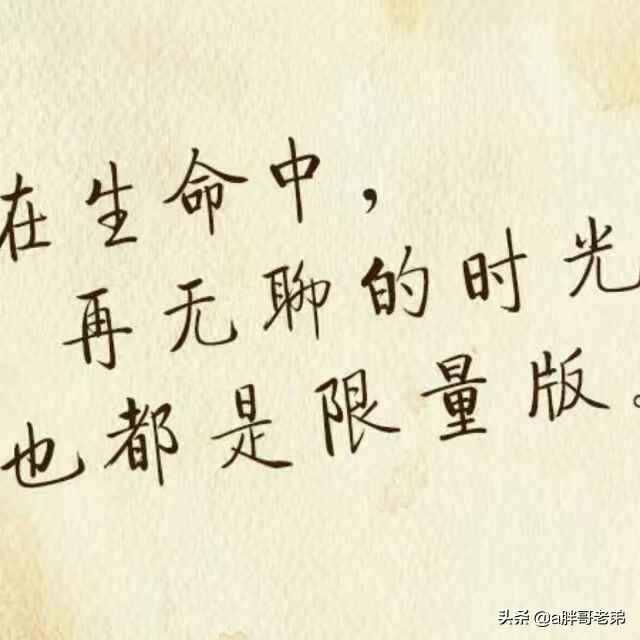 在生命中，
再无聊的时光
也都是限量版。
头条 @a胖哥老弟